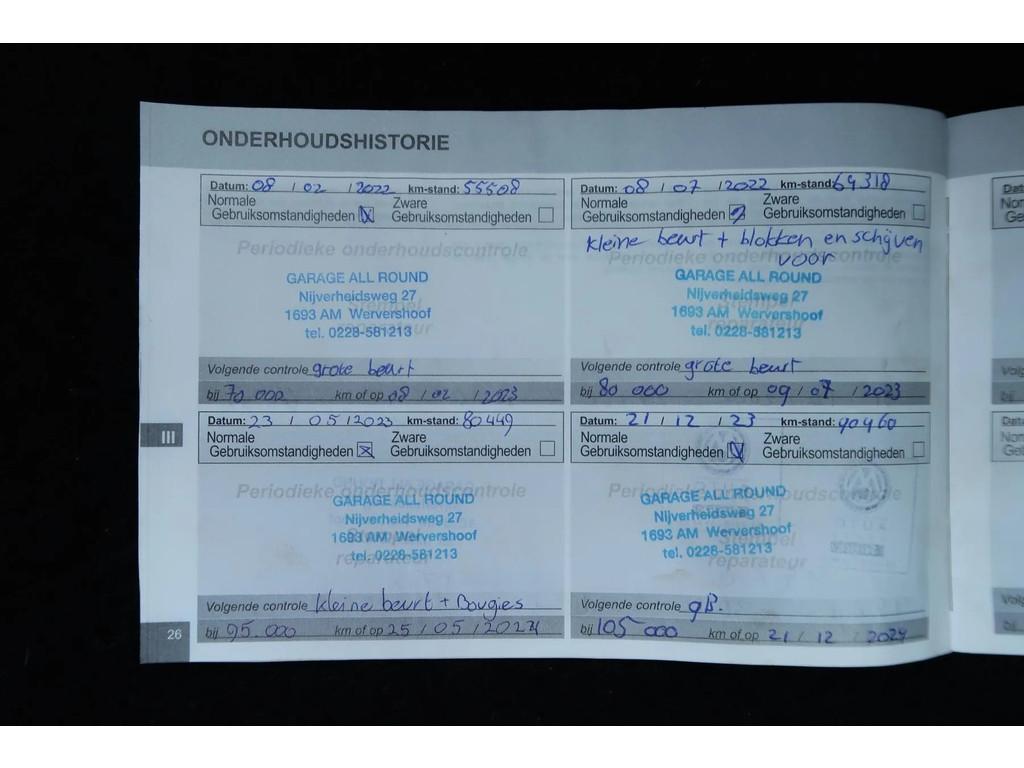 ONDERHOUDSHISTORIE
Datum: 08 / 02 / 2022 km-stand: 55508
Normale Gebruiksomstandigheden Zware Gebruiksomstandigheden
Periodieke onderhoudscontrole
GARAGE ALL ROUND
Nijverheidsweg 27
1693 AM Wervershoof
tel. 0228-581213
Stempel
reparateur
Volgende controle grote beurt
bij 70 000 km of op 08 / 02 / 2023
Datum: 08 / 07 / 2022 km-stand: 64318
Normale Gebruiksomstandigheden Zware Gebruiksomstandigheden
kleine beurt + blokken en schijven
voor
Periodieke onderhoudscontrole
GARAGE ALL ROUND
Nijverheidsweg 27
1693 AM Wervershoof
tel. 0228-581213
Stempel
reparateur
Volgende controle grote beurt
bij 80 000 km of op 09 / 07 / 2023
Datum: 23 / 05 / 2023 km-stand: 80449
Normale Gebruiksomstandigheden Zware Gebruiksomstandigheden
Periodieke onderhoudscontrole
GARAGE ALL ROUND
Nijverheidsweg 27
1693 AM Wervershoof
tel. 0228-581213
Stempel
reparateur
Volgende controle kleine beurt + Bougies
bij 95.000 km of op 25 / 05 / 2024
Datum: 21 / 12 / 23 km-stand: 90460
Normale Gebruiksomstandigheden Zware Gebruiksomstandigheden
Periodieke onderhoudscontrole
GARAGE ALL ROUND
Nijverheidsweg 27
1693 AM Wervershoof
tel. 0228-581213
Stempel
reparateur
Volgende controle gB.
bij 105 000 km of op 21 / 12 / 2024
III
26